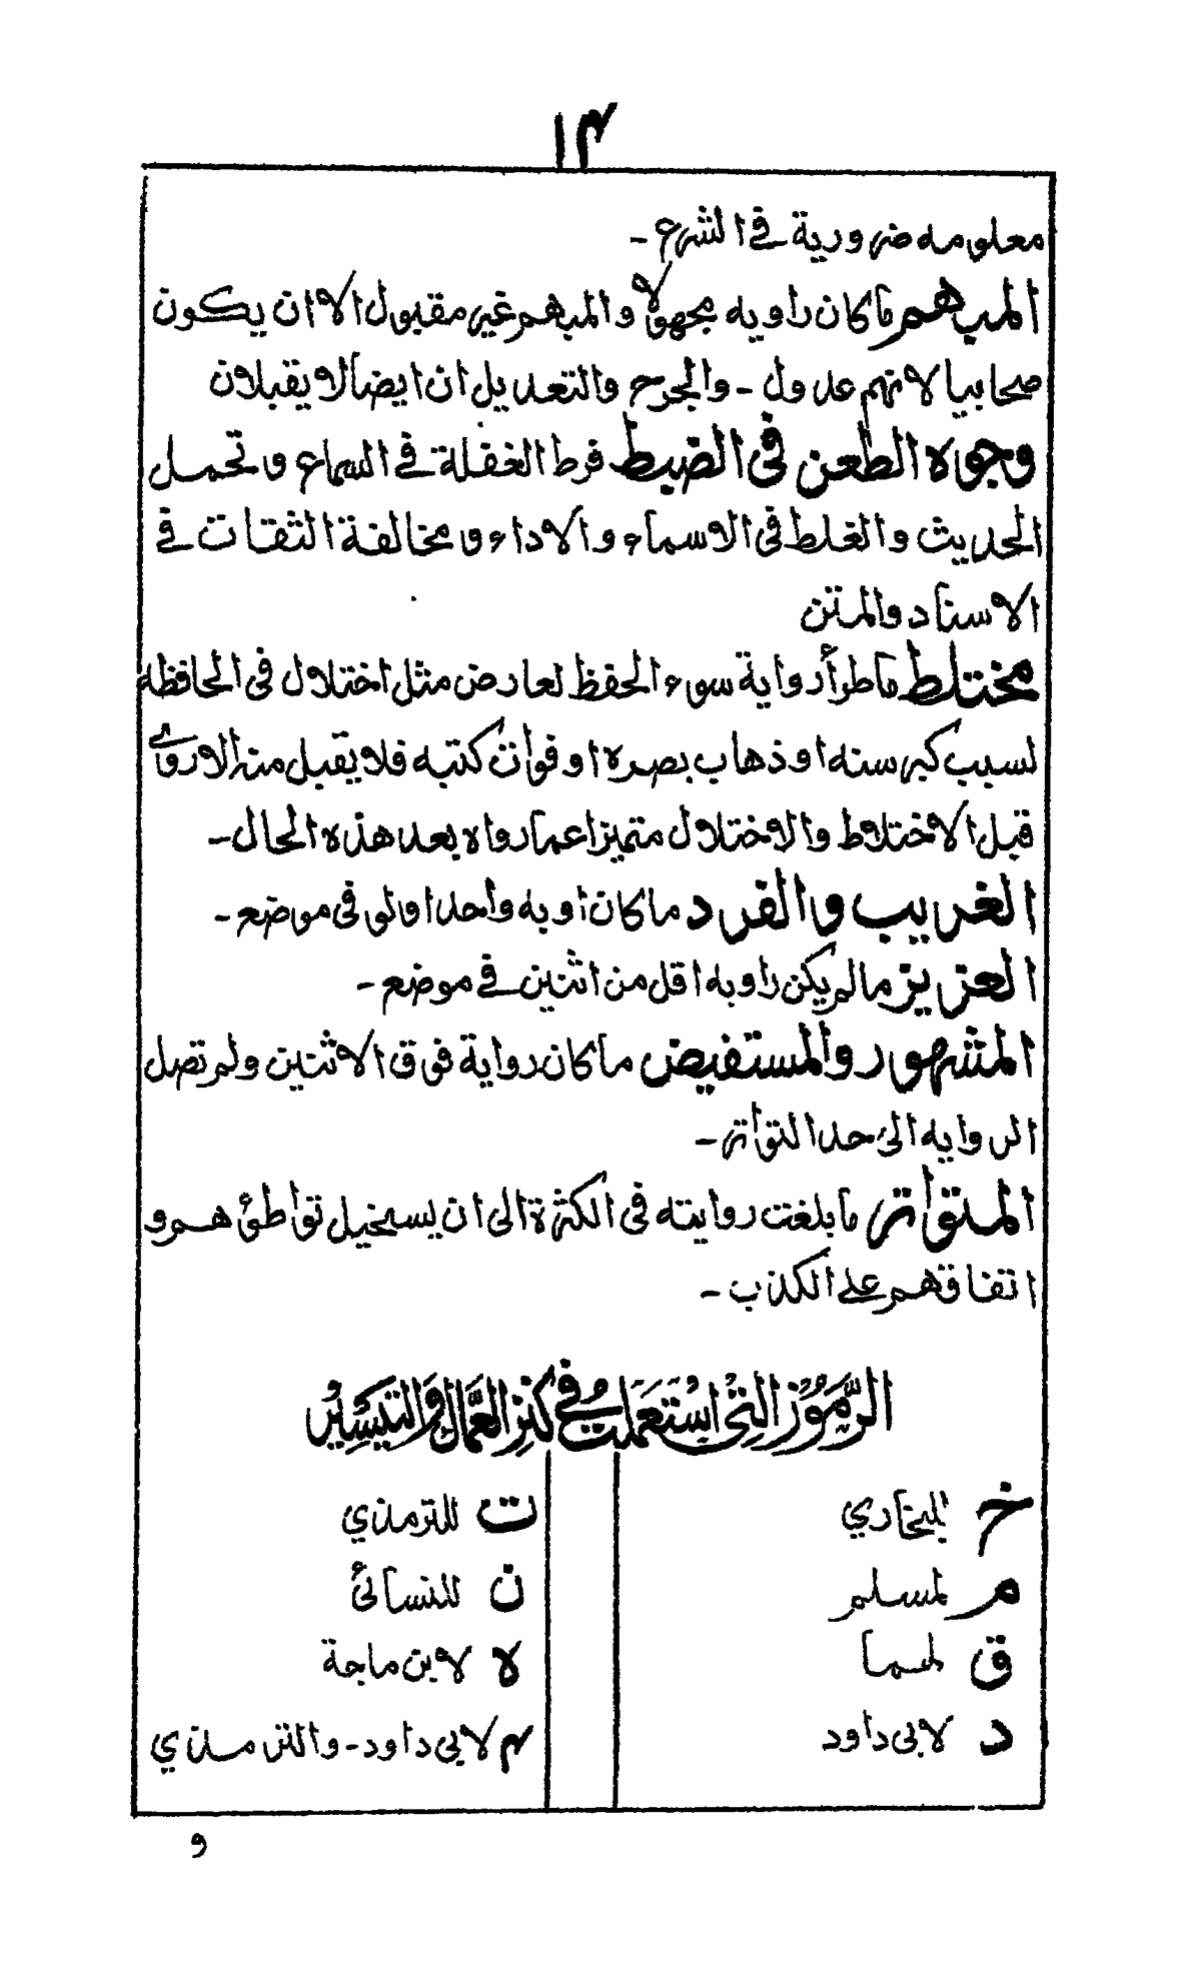 ١٤
معلومه ضرورية في الشرع -
المبهم ما كان راويه مجهولا والمبهم غير مقبول الا ان يكون
صحابيا لانهم عدول - والجرح والتعديل ان ايضا لا يقبلان
وجوه الطعن في الضبط فرط الغفلة في السماع و تحمل
الحديث والغلط في الاسماء والاداء و مخالفة الثقات في
الاسناد والمتن
مختلط ما طرأ رواية سوء الحفظ لعارض مثل اختلال في الحافظه
لسبب كبر سنه او ذهاب بصره او فوات كتبه فلا يقبل منه الا روى
قبل الاختلاط والاختلال متميزا عما رواه بعد هذه الحال -
الغريب والفرد ما كان اويه واحدا و لو في موضع -
العزيز ما لم يكن راويه اقل من اثنين في موضع -
المشهور والمستفيض ما كان رواية فوق الاثنين ولم تصل
الروايه الى حد التواتر -
المتواتر ما بلغت روايته في الكثرة الى ان يستحيل تواطئ هم و
اتفاقهم على الكذب -
الرُّمُوْز الَّتِي اسْتَعْمَلْتُ فِي كَنْزِ الْعُمَّال وَالتَّيْسِيْر
خ للبخاري
ت للترمذي
م لمسلم
ن للنسائي
ق لهما
لا لابن ماجة
د لابي داود
٤ لابي داود - والترمذي
و